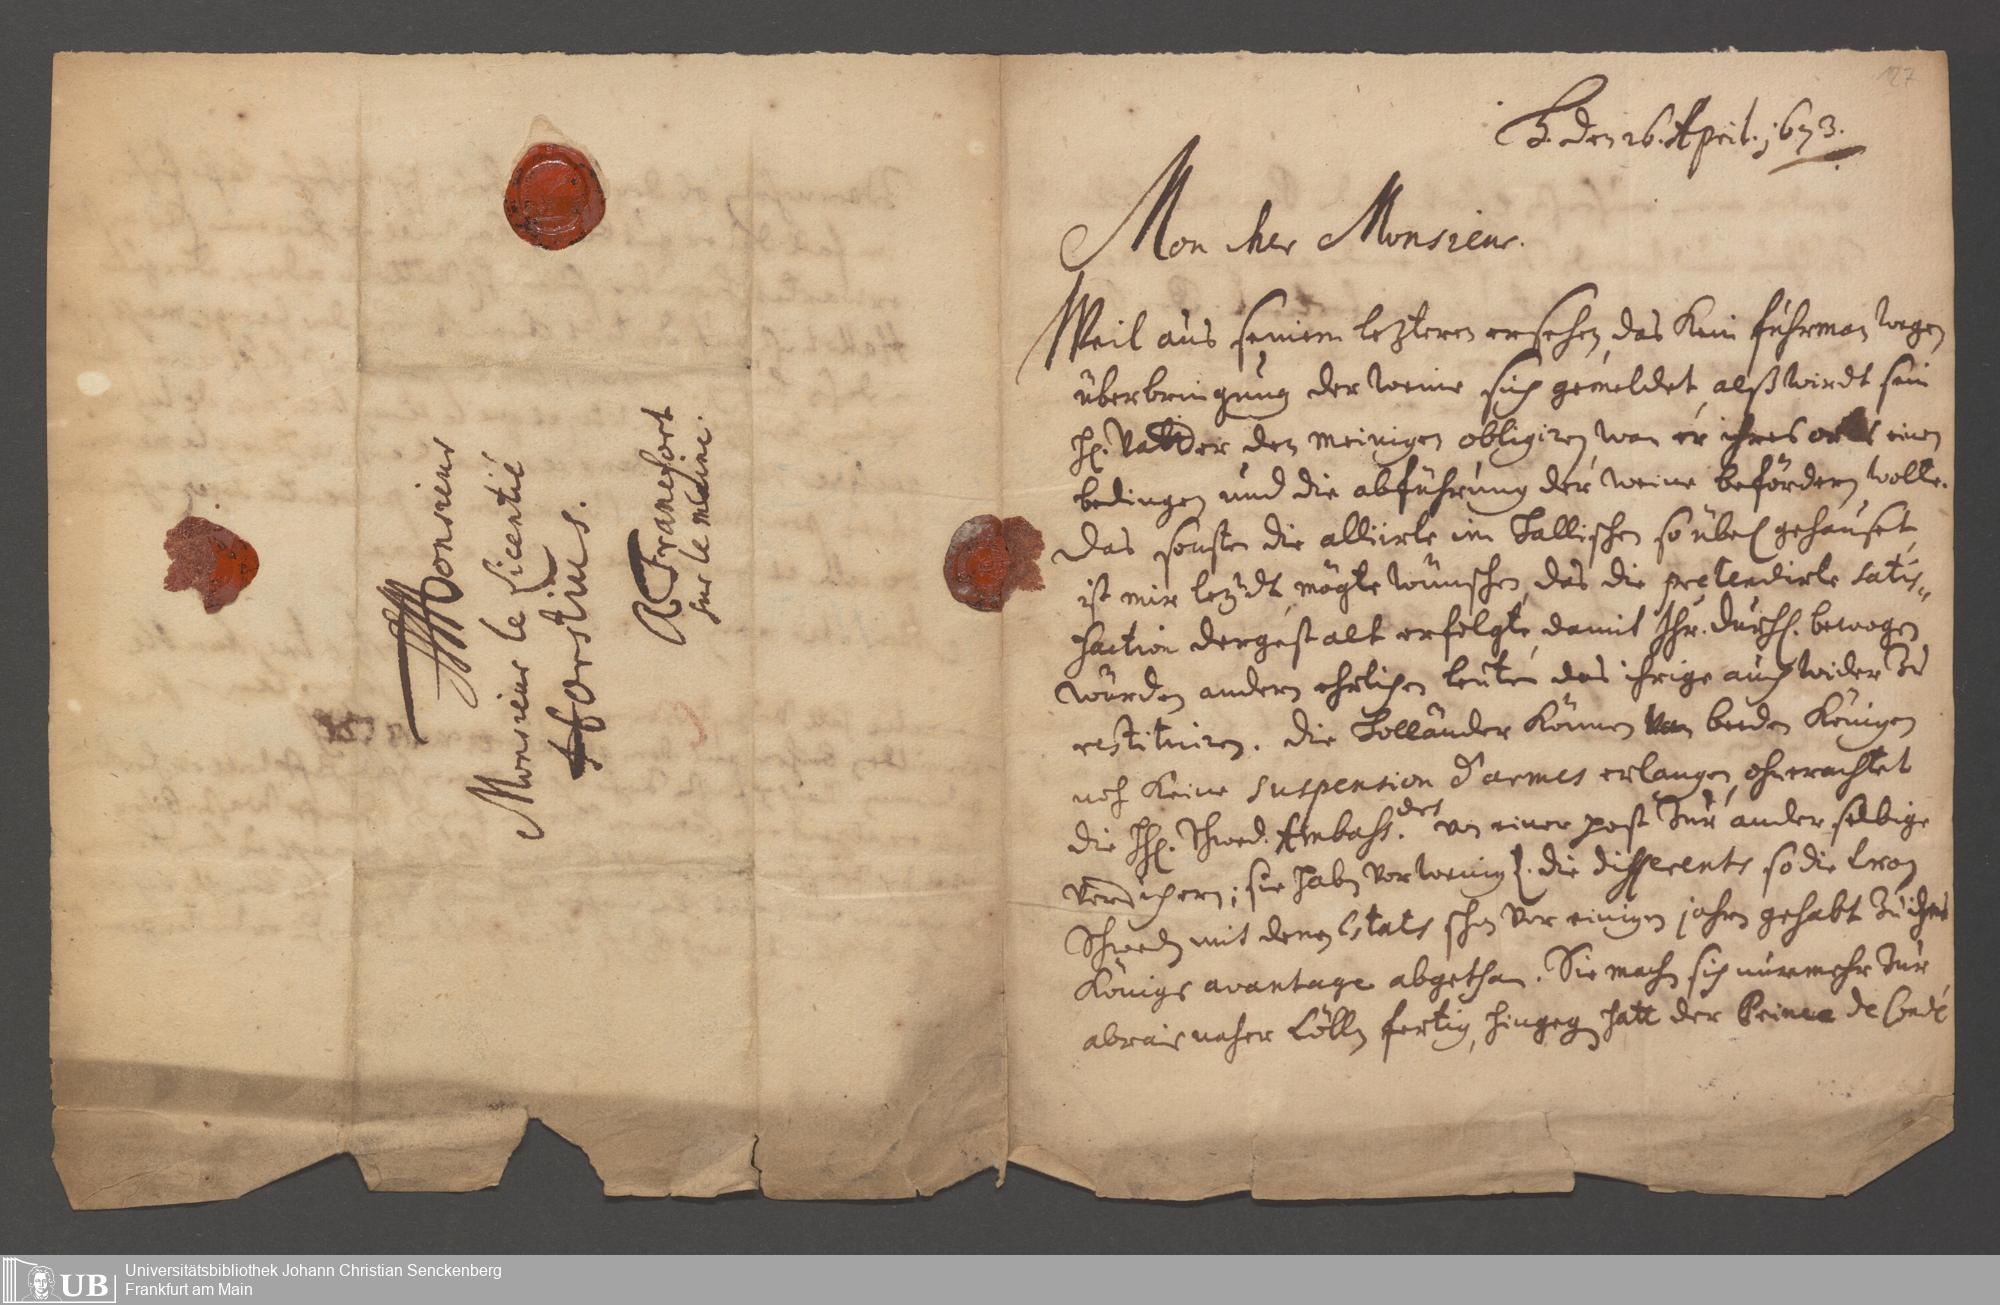 Monsieur
Monsieur le Licentié
Horstius.
A Francfort
sur le Maine.
127
H. den 26. April. 1673.
Mon cher Monsieur.
Weil aus seinem letzteren ersehen, das kein fuhrman wegen
überbringung der weine sich gemeldet, alß wirdt sein
H. Vatter den meinigen obligiren, wan er ihres orts einen
bedingen und die abführung der weine befördern wolle.
Das sonsten die alliirte im Hallischen so übel gehauset,
ist mir leydt, mögte wünschen, das die pretendirte satis-
faction dergestalt erfolgte, damit Ihr. Durchl. bewogen
würden andern ehrlichen leuten das ihrige auch wider zu
restituiren. Die Holländer können von beeden Königen
noch keine suspension d'armes erlangen, ohnerachtet
die HH. Schwed. Ambass.des von einer post zur ander selbige
versichern; sie haben vor wenig t. die differents so die Cron
Schweden mit denen Estats schon vor einigen jahren gehabt zu ihres
Königs avantage abgethan. Sie machen sich nunmehr zur
abreis naher Cölln fertig, hingegen hatt der Prince de Condé
UB
Universitätsbibliothek Johann Christian Senckenberg
Frankfurt am Main